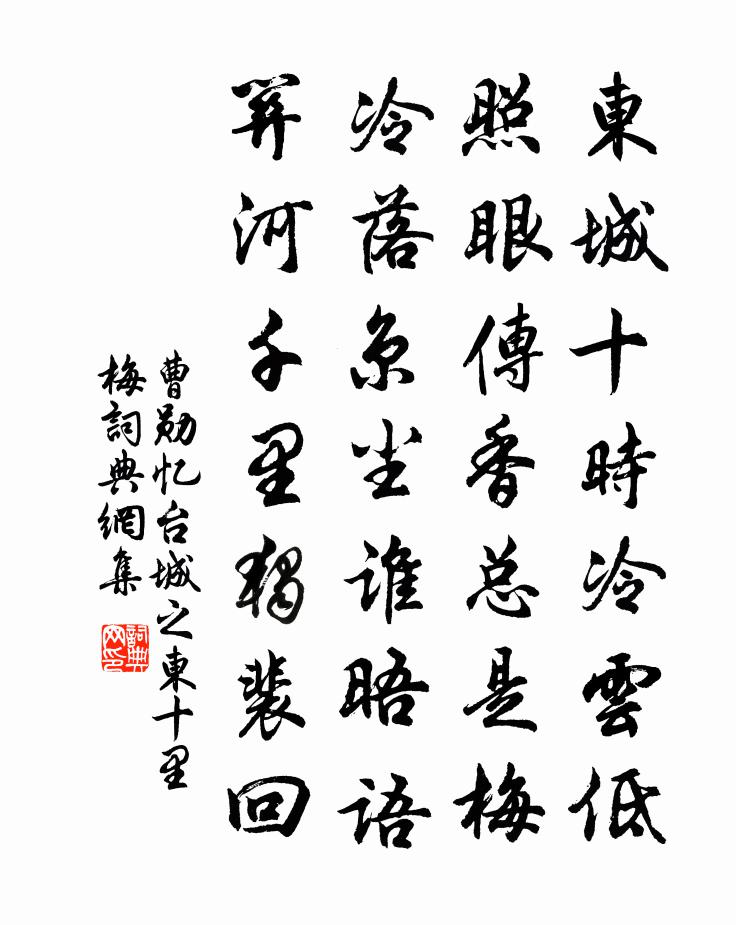 東城十時冷雲低
照眼傳香总是梅
冷落京尘谁晤语
关河千里獨裴回
曹勋忆台城之東十里
梅詞典網集
詞典网印